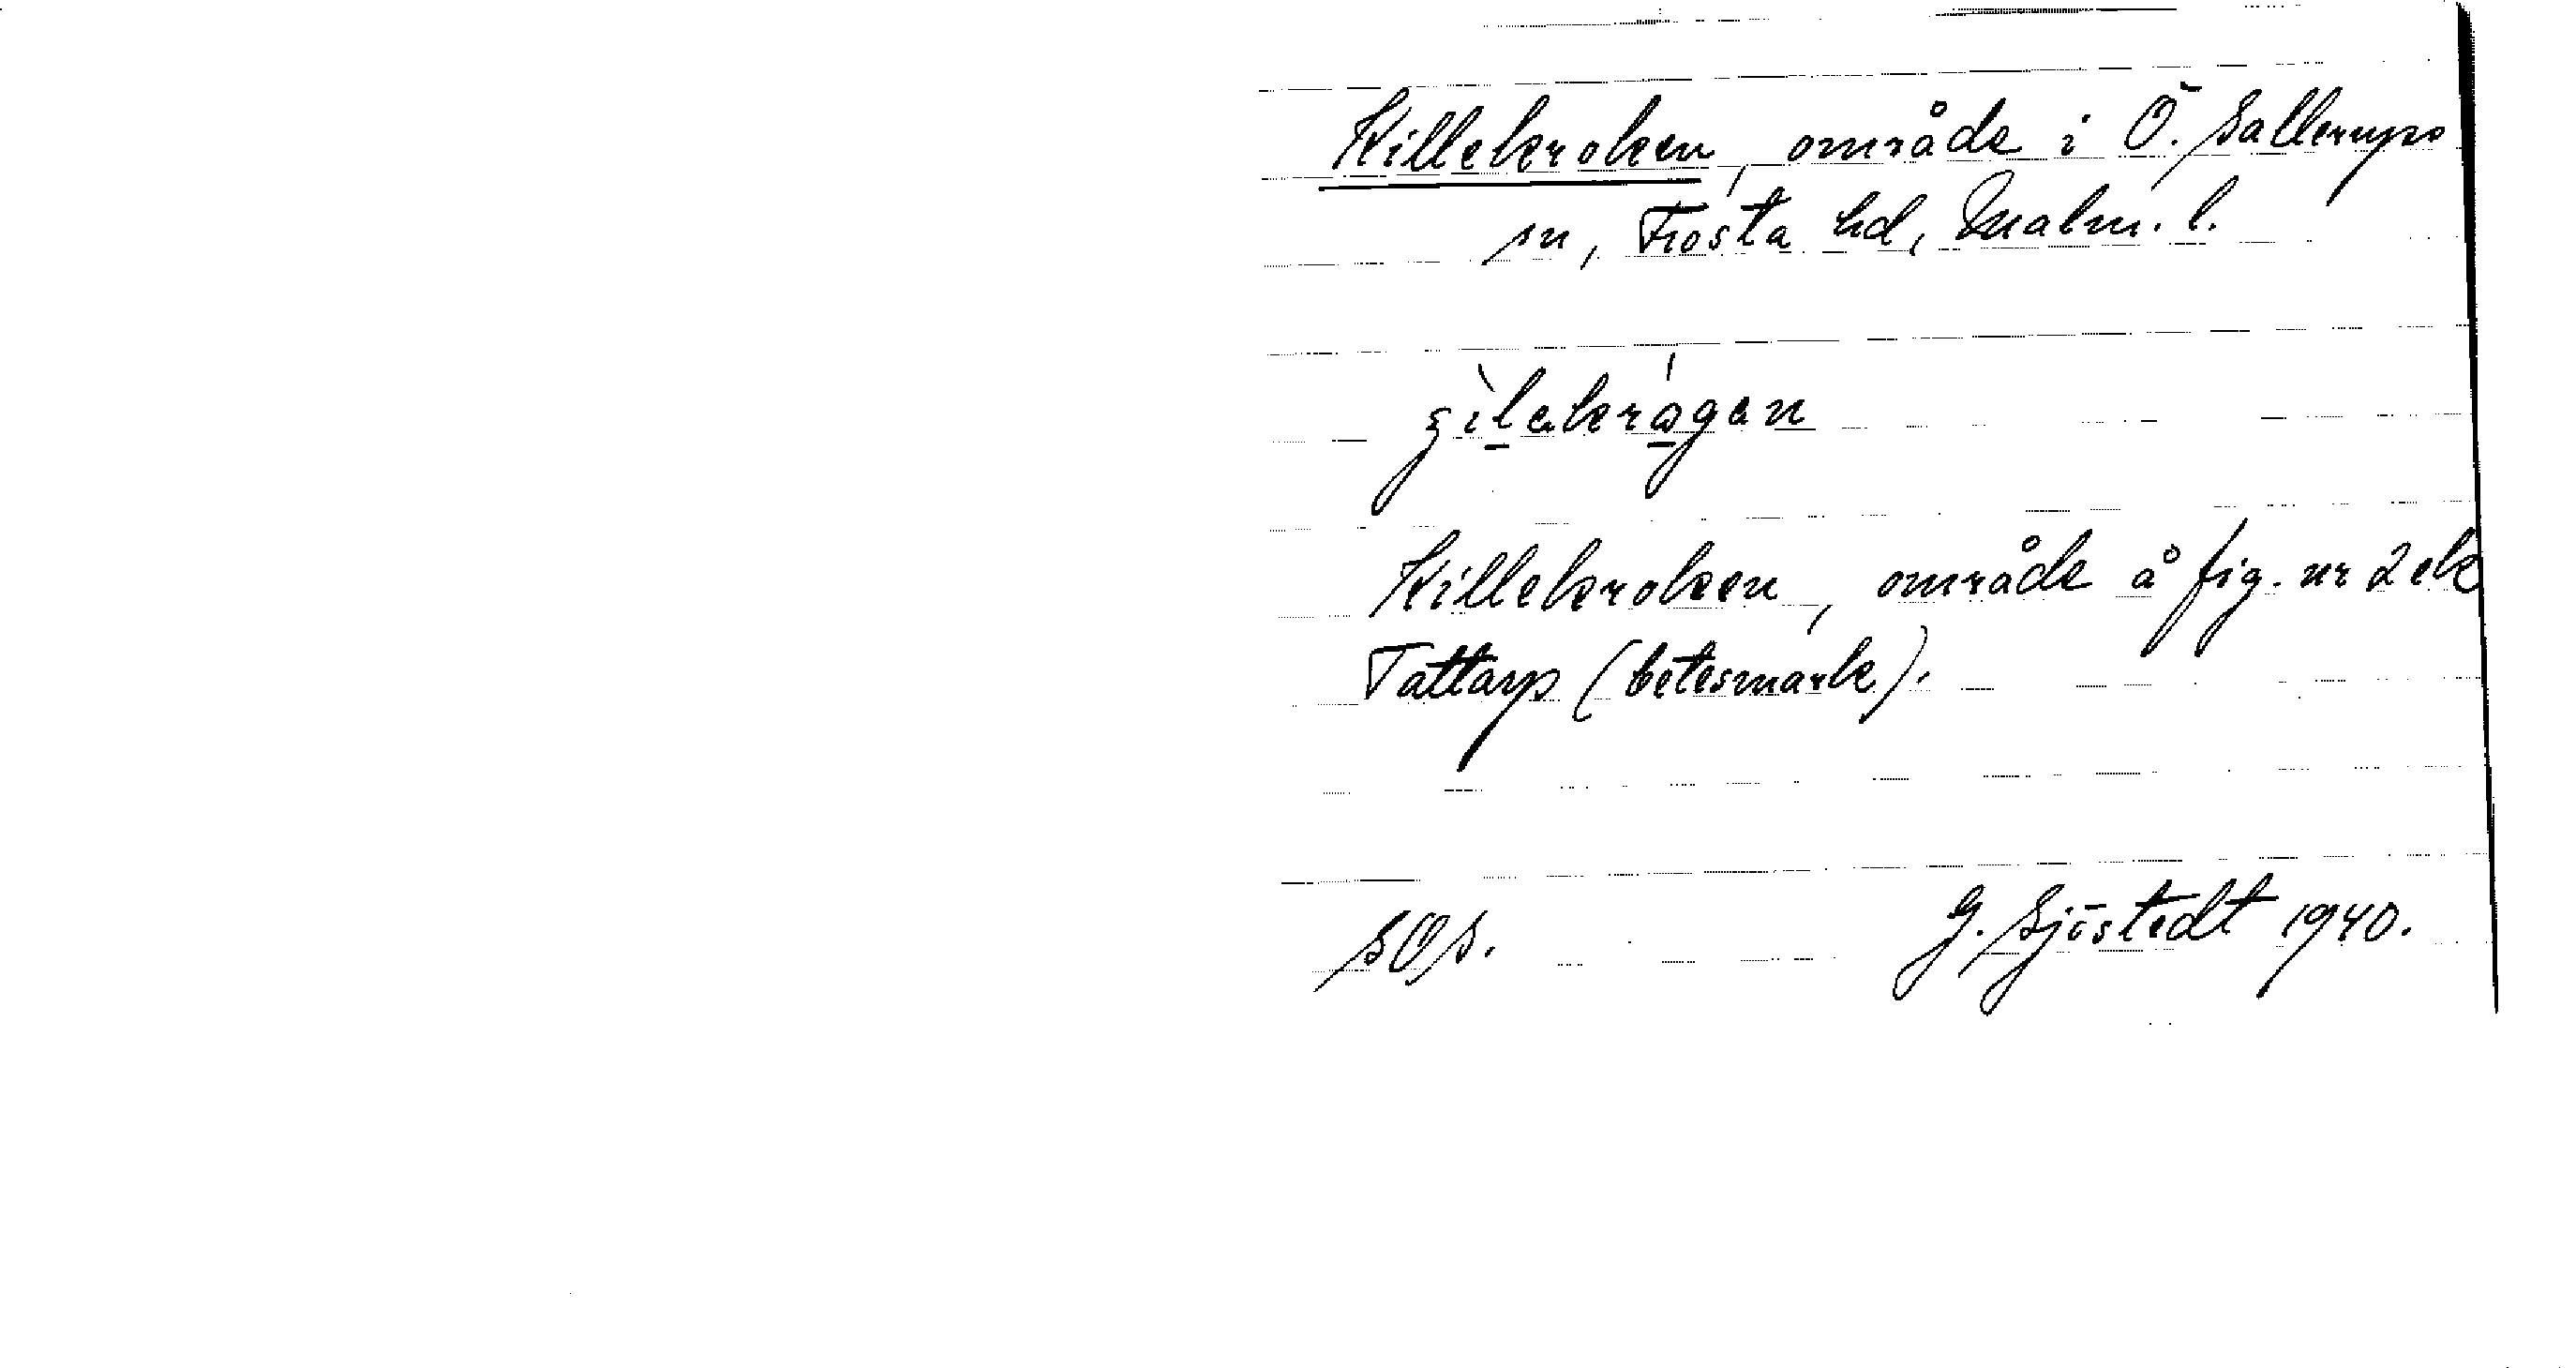 Killekroken, område i Ö. Sallerups
sn, Frosta hd, Malm. l.
Killekroken, område å fig. nr 2 ek
Tattarp (betesmark).
SOS. G. Sjöstedt 1940.